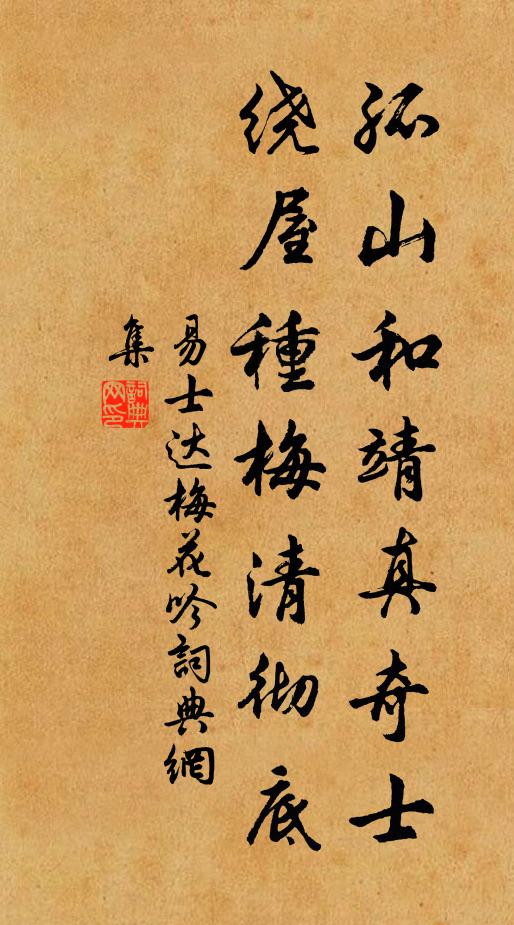 孤山和靖真奇士
绕屋種梅清彻底
易士达梅花吟詞典網
集
詞典网印